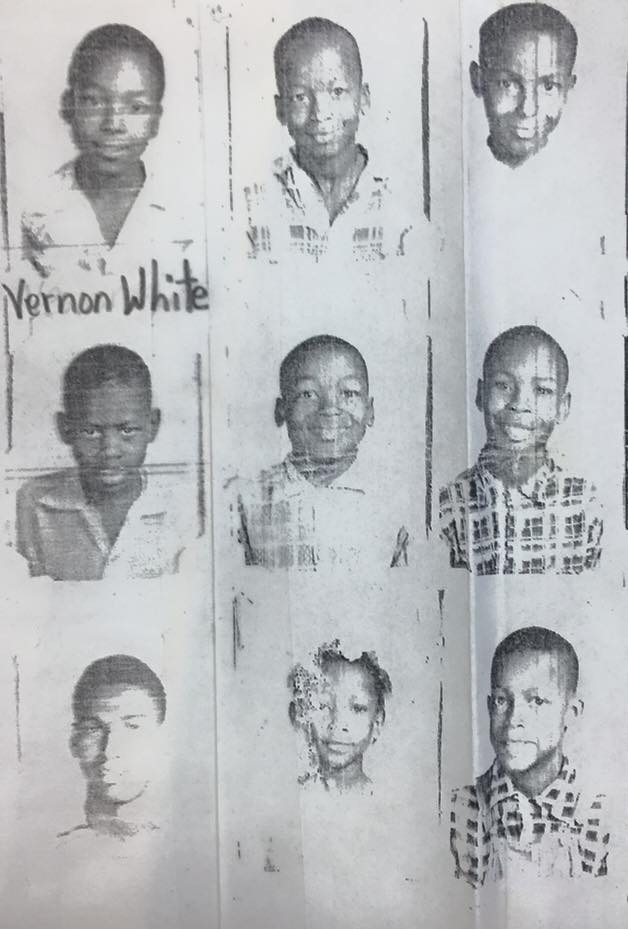 Vernon White